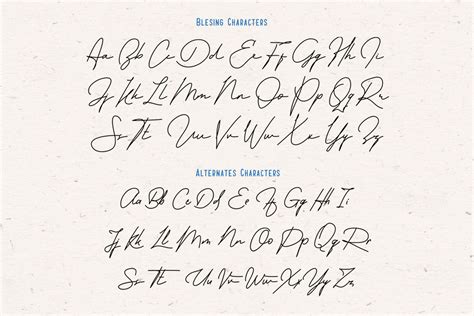 Blesing Characters
Aa Bb Cc Dd Ee Ff Gg Hh Ii
Jj Kk Ll Mm Nn Oo Pp Qq Rr
Ss Tt Uu Vv Ww Xx Yy Zz
Alternates Characters
Aa Bb Cc Dd Ee Ff Gg Hh Ii
Jj Kk Ll Mm Nn Oo Pp Qq Rr
Ss Tt Uu Vv Ww Xx Yy Zz